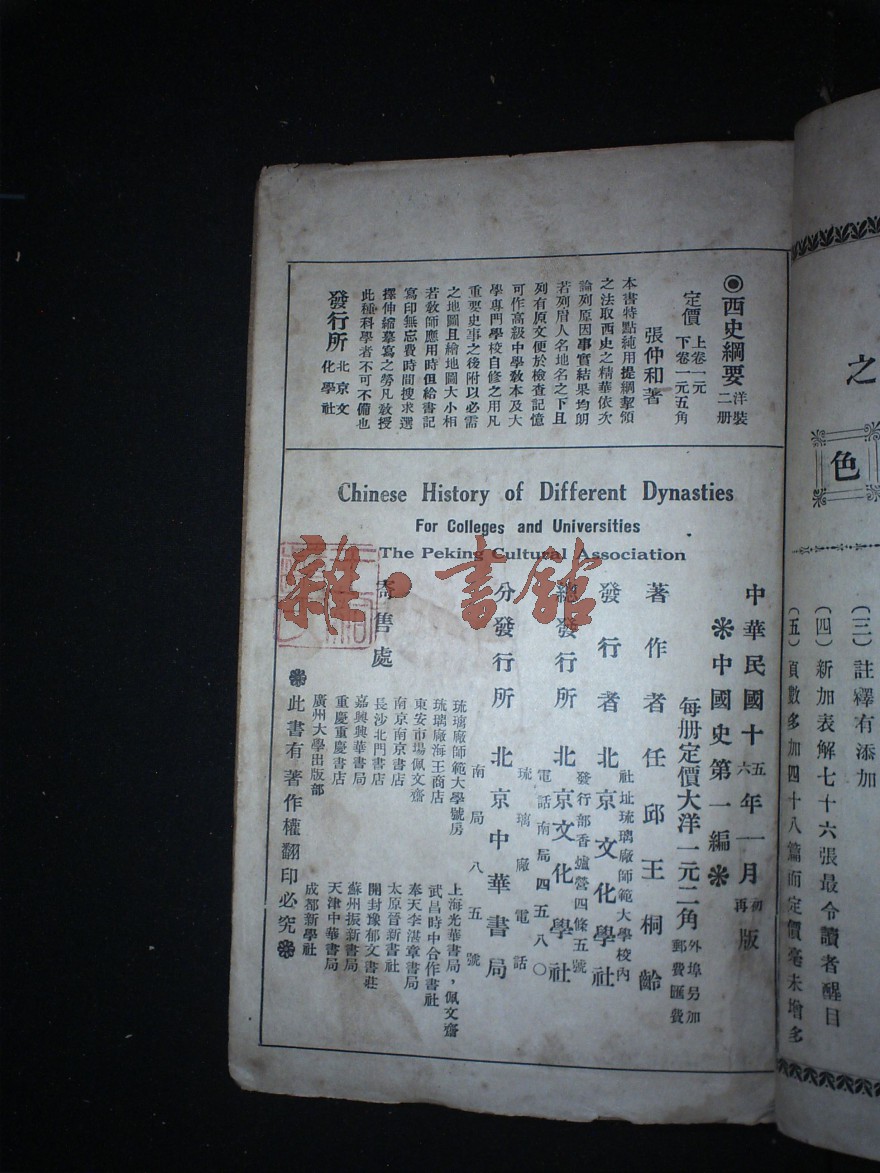 之
色
(三)註釋有添加
(四)新加表解七十六張最令讀者醒目
(五)頁數多加四十八篇而定價毫未增多
◉西史綱要
洋裝二册
定價
上卷一元
下卷一元五角
張仲和著
本書特點純用提綱挈領
之法取西史之精華依次
論列原因事實結果均朗
若列眉人名地名之下且
列有原文便於檢查記憶
可作高級中學教本及大
學專門學校自修之用凡
重要史事之後附以必需
之地圖且繪地圖大小相
若教師應用時但給書記
寫印無忘費時間搜求選
擇伸縮摹寫之勞凡教授
此種科學者不可不備也
發行所
北京文
化學社
Chinese History of Different Dynasties
For Colleges and Universities
The Peking Cultural Association
中華民國十五六年一月初再版
中國史第一編
每册定價大洋一元二角
外埠另加
郵費匯費
著作者任邱王桐齡
社址琉璃廠師範大學校內
發行者北京文化學社
發行部香爐營四條五號
總發行所北京文化學社
電話南局四五八〇
分發行所北京中華書局
琉璃廠電話
南局八五號
寄售處
琉璃廠師範大學號房
琉璃廠海王商店
東安市場佩文齋
南京南京書店
長沙北門書店
嘉興興華書局
重慶重慶書店
廣州大學出版部
上海光華書局,佩文齋
武昌時中合作書社
奉天李湛章書局
太原晉新書社
開封豫郁文書莊
蘇州振新書局
天津中華書局
成都新學社
此書有著作權翻印必究
雜·書館